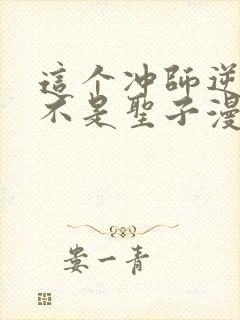 這个冲師逆
不是聖子漫
娄一青